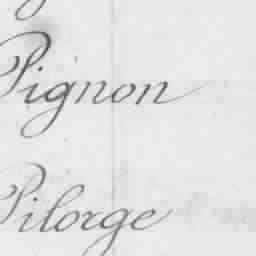 Pignon
Pilorge